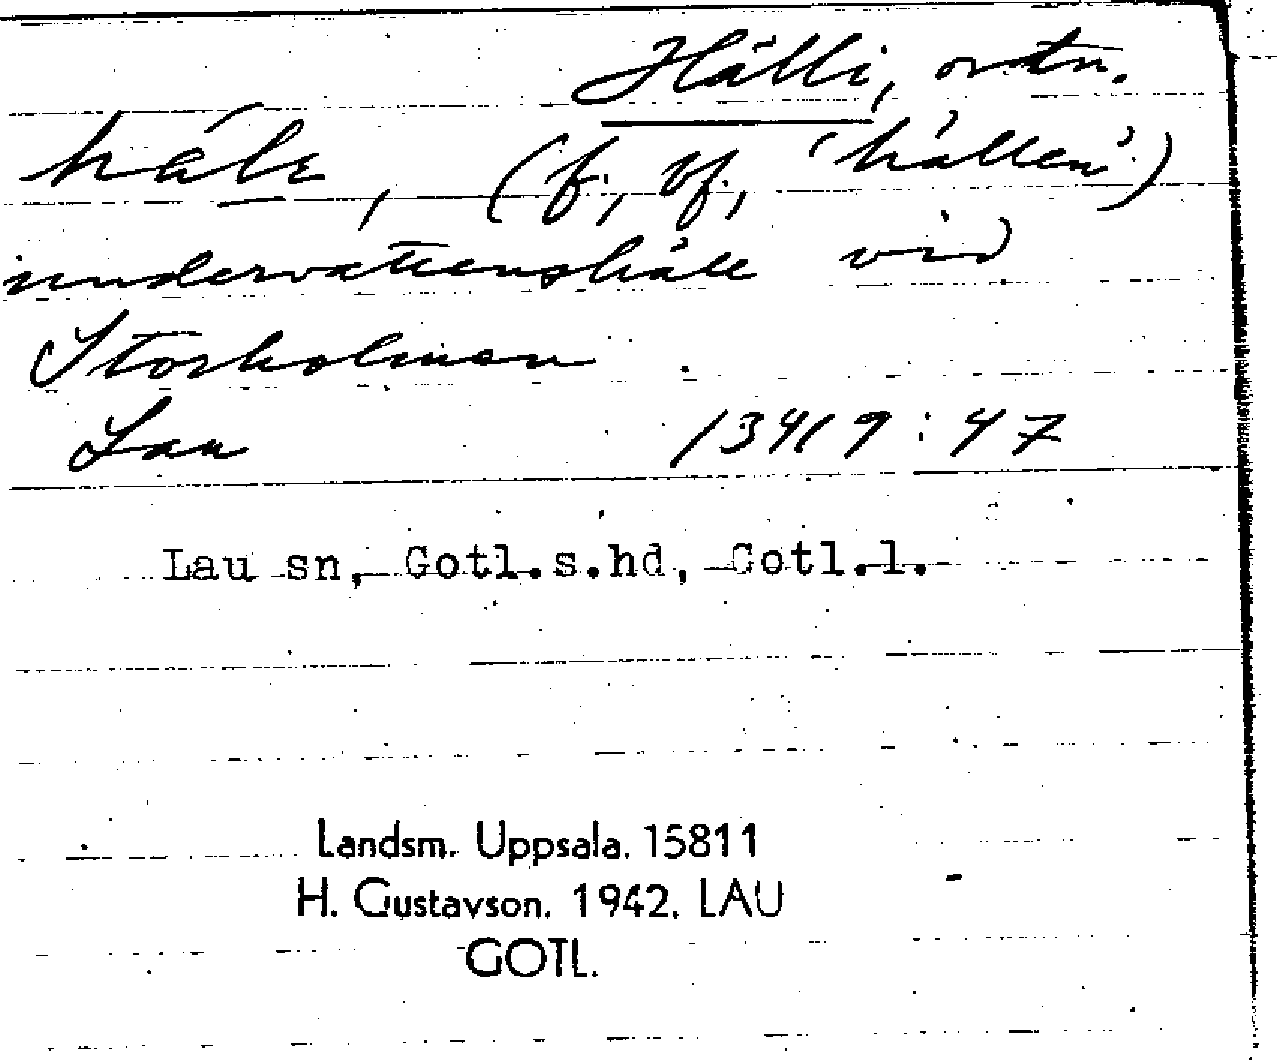 Hälli, ortn.
hälı, (f., bf., 'hällen')
undervattenshäll vid
Storholmen
Lau 13419:47
Lau sn, Gotl.s.hd, Gotl.l.
Landsm. Uppsala. 15811
H. Gustavson. 1942. LAU
GOTL.